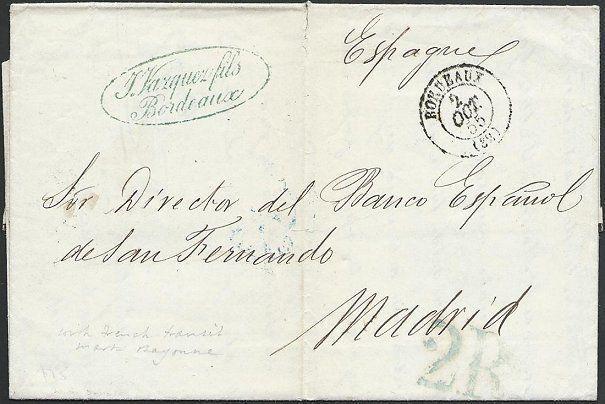 J. Vazquez fils
Bordeaux
Espagne
BORDEAUX
2
OCT
55
(32)
Sor Director del Banco Español
de San Fernando
Madrid
with French transit
mark Bayonne
2R